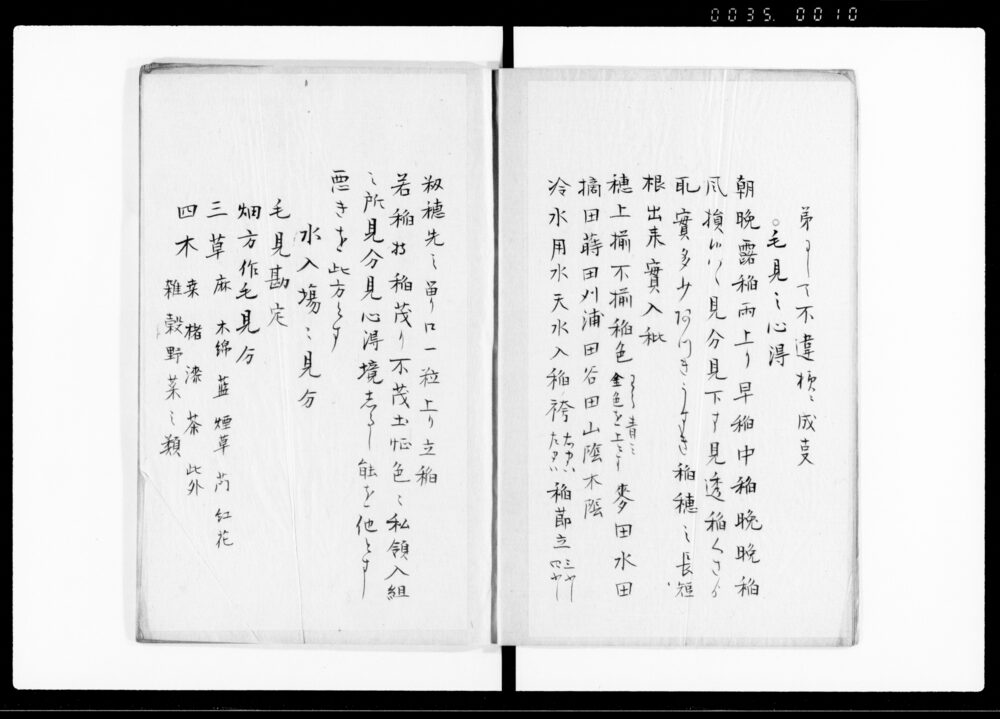 0035. 0010
弟ニして不違様ニ成支
○毛見之心得
朝晩露稲雨上り早稲中稲晩晩稲
風損 見分見下す見透稲くさり
耴實多少 うすき稲穂之長短
根出来實入秕
穂上揃不揃稲色 青ミ 金色を上とす 麥田水田
摘田蒔田刈浦田谷田山陰木陰
冷水用水天水入稲ノ袴 稲節立
籾穂先之留り口一粒上り立稲
若稲 稲茂り不茂土性色々私領入組
之所見分見心得境 能を他とす
悪きを此方とす
水入場之見分
毛見勘定
畑方作毛見分
三草 麻 木綿 藍 煙草 芍 紅花
四木 桑 楮 漆 茶 此外
雑穀野菜之類